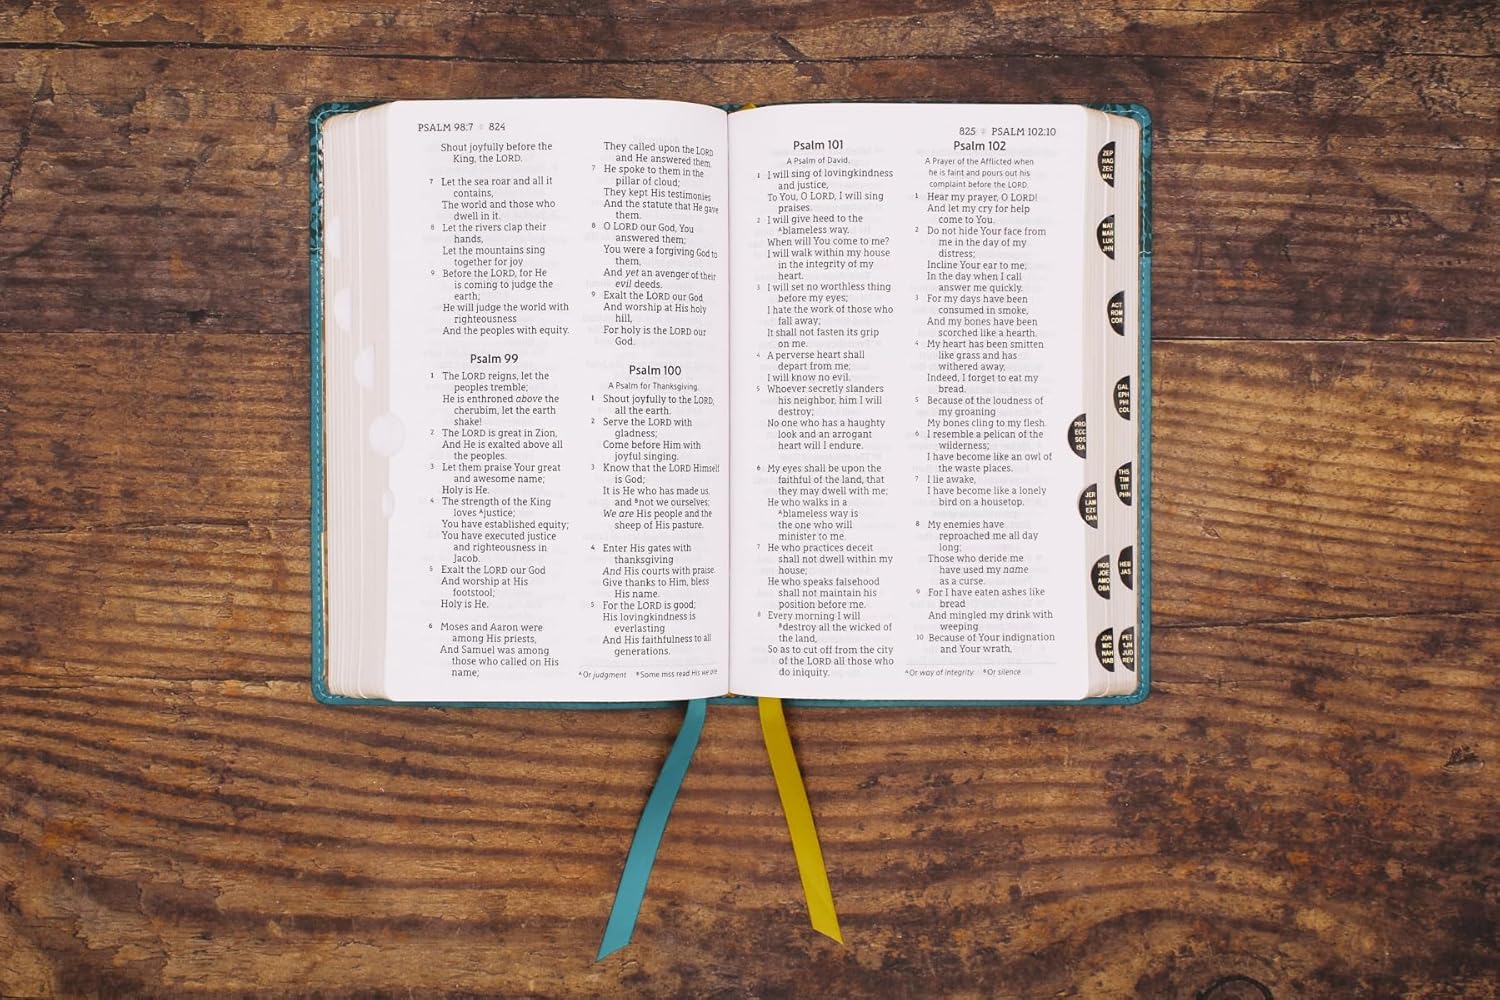 PSALM 98:7 824
Shout joyfully before the
King, the LORD.
7 Let the sea roar and all it
contains,
The world and those who
dwell in it.
8 Let the rivers clap their
hands,
Let the mountains sing
together for joy
9 Before the LORD, for He
is coming to judge the
earth;
He will judge the world with
righteousness
And the peoples with equity.
Psalm 99
1 The LORD reigns, let the
peoples tremble;
He is enthroned above the
cherubim, let the earth
shake!
2 The LORD is great in Zion,
And He is exalted above all
the peoples.
3 Let them praise Your great
and awesome name;
Holy is He.
4 The strength of the King
loves ᴬjustice;
You have established equity;
You have executed justice
and righteousness in
Jacob.
5 Exalt the LORD our God
And worship at His
footstool;
Holy is He.
6 Moses and Aaron were
among His priests,
And Samuel was among
those who called on His
name;
They called upon the LORD
and He answered them.
7 He spoke to them in the
pillar of cloud;
They kept His testimonies
And the statute that He gave
them.
8 O LORD our God, You
answered them;
You were a forgiving God to
them,
And yet an avenger of their
evil deeds.
9 Exalt the LORD our God
And worship at His holy
hill,
For holy is the LORD our
God.
Psalm 100
A Psalm for Thanksgiving.
1 Shout joyfully to the LORD,
all the earth.
2 Serve the LORD with
gladness;
Come before Him with
joyful singing.
3 Know that the LORD Himself
is God;
It is He who has made us,
and ᴮnot we ourselves;
We are His people and the
sheep of His pasture.
4 Enter His gates with
thanksgiving
And His courts with praise.
Give thanks to Him, bless
His name.
5 For the LORD is good;
His lovingkindness is
everlasting
And His faithfulness to all
generations.
ᴬOr judgment ᴮSome mss read His we are
825 PSALM 102:10
Psalm 101
A Psalm of David.
1 I will sing of lovingkindness
and justice,
To You, O LORD, I will sing
praises.
2 I will give heed to the
ᴬblameless way.
When will You come to me?
I will walk within my house
in the integrity of my
heart.
3 I will set no worthless thing
before my eyes;
I hate the work of those who
fall away;
It shall not fasten its grip
on me.
4 A perverse heart shall
depart from me;
I will know no evil.
5 Whoever secretly slanders
his neighbor, him I will
destroy;
No one who has a haughty
look and an arrogant
heart will I endure.
6 My eyes shall be upon the
faithful of the land, that
they may dwell with me;
He who walks in a
ᴬblameless way is
the one who will
minister to me.
7 He who practices deceit
shall not dwell within my
house;
He who speaks falsehood
shall not maintain his
position before me.
8 Every morning I will
ᴮdestroy all the wicked of
the land,
So as to cut off from the city
of the LORD all those who
do iniquity.
Psalm 102
A Prayer of the Afflicted when
he is faint and pours out his
complaint before the LORD.
1 Hear my prayer, O LORD!
And let my cry for help
come to You.
2 Do not hide Your face from
me in the day of my
distress;
Incline Your ear to me;
In the day when I call
answer me quickly.
3 For my days have been
consumed in smoke,
And my bones have been
scorched like a hearth.
4 My heart has been smitten
like grass and has
withered away,
Indeed, I forget to eat my
bread.
5 Because of the loudness of
my groaning
My bones cling to my flesh.
6 I resemble a pelican of the
wilderness;
I have become like an owl of
the waste places.
7 I lie awake,
I have become like a lonely
bird on a housetop.
8 My enemies have
reproached me all day
long;
Those who deride me
have used my name
as a curse.
9 For I have eaten ashes like
bread
And mingled my drink with
weeping
10 Because of Your indignation
and Your wrath,
ᴬOr way of integrity ᴮOr silence
ZEP
HAG
ZEC
MAL
MAT
MAR
LUK
JHN
ACT
ROM
COR
GAL
EPH
PHI
COL
PRO
ECC
SOS
ISA
THS
TIM
TIT
PHN
JER
LAM
EZE
DAN
HOS
JOE
AMO
OBA
HEB
JAS
JON
MIC
NAH
HAB
PET
1JN
JUD
REV